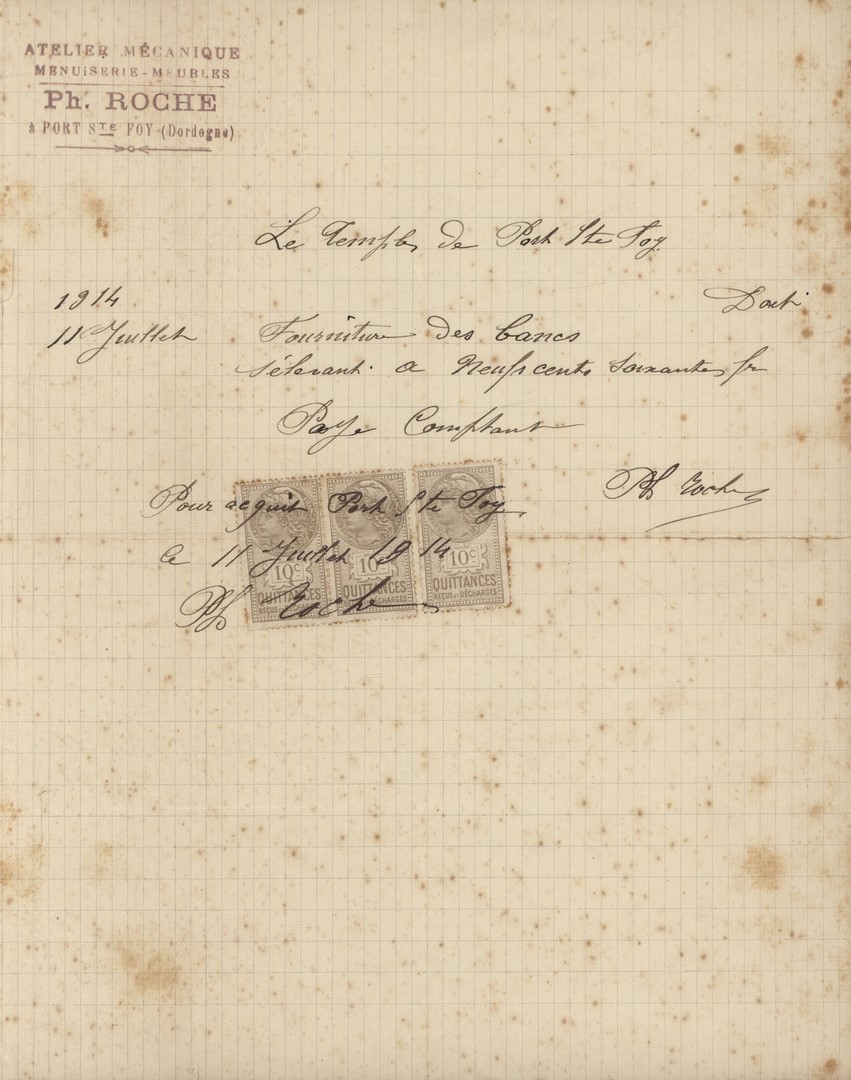 ATELIER MÉCANIQUE
MENUISERIE-MEUBLES
Ph. ROCHE
à PORT STE FOY (Dordogne)
Le Temple de Port Ste Foy
Doit
1914
11 Juillet Fourniture des bancs
s'élevant a Neufs cents soixantes fr
Paye Comptant
Ph Roche
Pour acquit Port Ste Foy
le 11 Juillet 1914
Ph Roche
10c QUITTANCES REÇUS ET DÉCHARGES
10c QUITTANCES REÇUS ET DÉCHARGES
10c QUITTANCES REÇUS ET DÉCHARGES